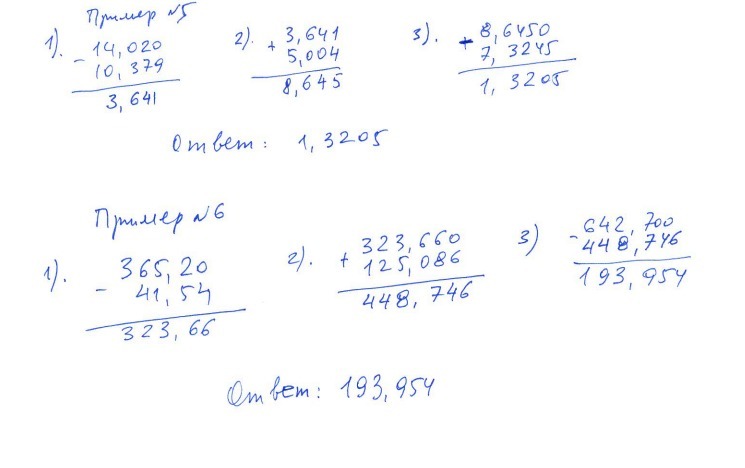 Пример №5
1). - 14,020
10,379
3,641
2). + 3,641
5,004
8,645
3). + 8,6450
7,3245
1,3205
Ответ: 1,3205
Пример №6
1). - 365,20
41,54
323,66
2). + 323,660
125,086
448,746
3) - 642,700
448,746
193,954
Ответ: 193,954